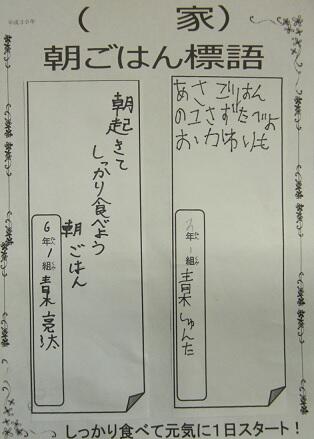 平成30年
( 家)
朝ごはん標語
あさごはん
のこさずたべよ
おかわりも
年 1組 青木しゅんた
朝起きて
しっかり食べよう
朝ごはん
6年1組 青木亮汰
しっかり食べて元気に1日スタート!